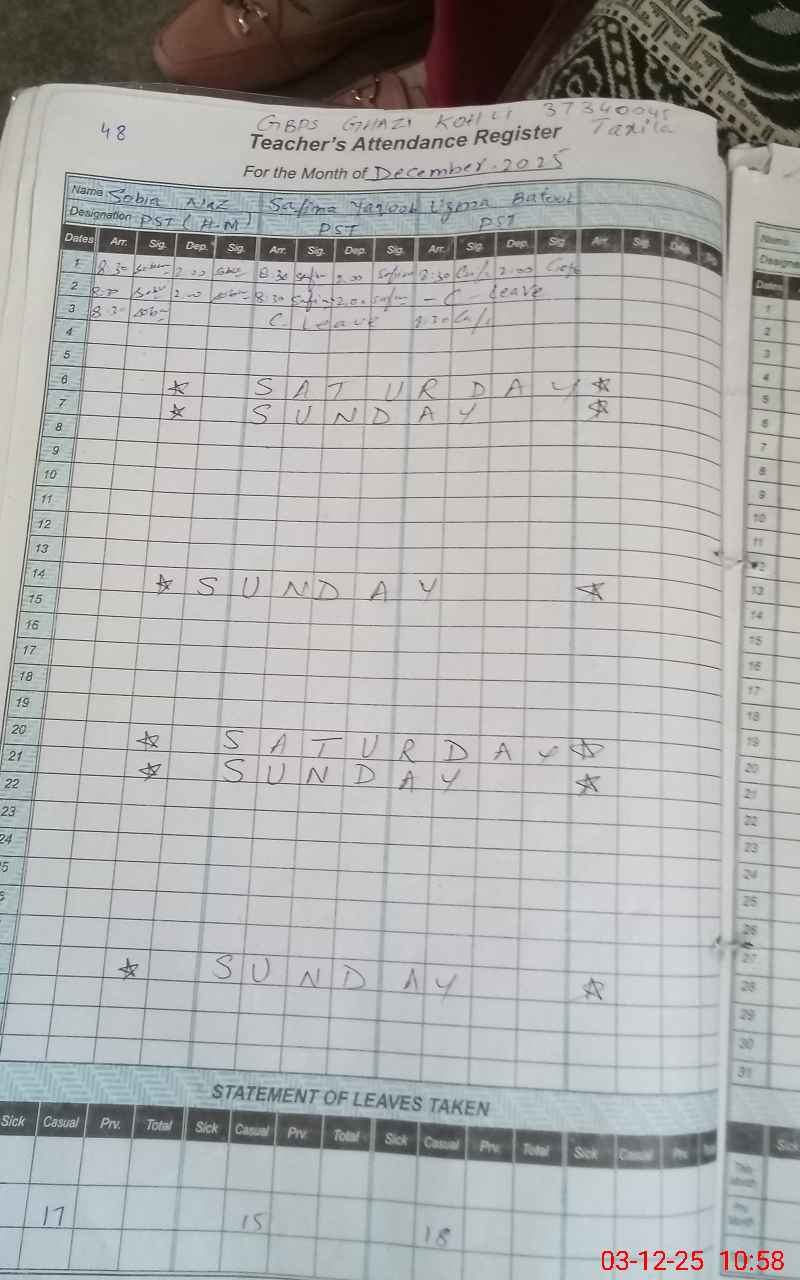 48
GBPS GHAZI KOHLI 37340045
Teacher's Attendance Register Taxila
For the Month of December-2025
Name Sobia Naz Safina Yaqoob Uzma Batool
Designation PST (H.M) PST PST
Dates Arr. Sig. Dep. Sig. Arr. Sig. Dep. Sig. Arr. Sig. Dep. Sig. Arr. Sig. Dep.
1 8.30 2.00 8.30 2.00 8.30 2.00
2 2.00 8.30 2.00 - C - Leave
3 8.30 C. Leave 8.30
4
5
6 SATURDAY
7 SUNDAY
8
9
10
11
12
13
14 SUNDAY
15
16
17
18
19
20 SATURDAY
21 SUNDAY
22
23
24
5
SUNDAY
STATEMENT OF LEAVES TAKEN
Sick Casual Prv. Total Sick Casual Prv. Total Sick Casual Prv. Total Sick Casual Prv.
17 15 18
Name
Designa
Dates
1
2
3
4
5
6
7
8
9
10
11
12
13
14
15
16
17
18
19
20
21
22
23
24
25
26
27
28
29
30
31
Sick
This Month
Prv. Month
03-12-25 10:58